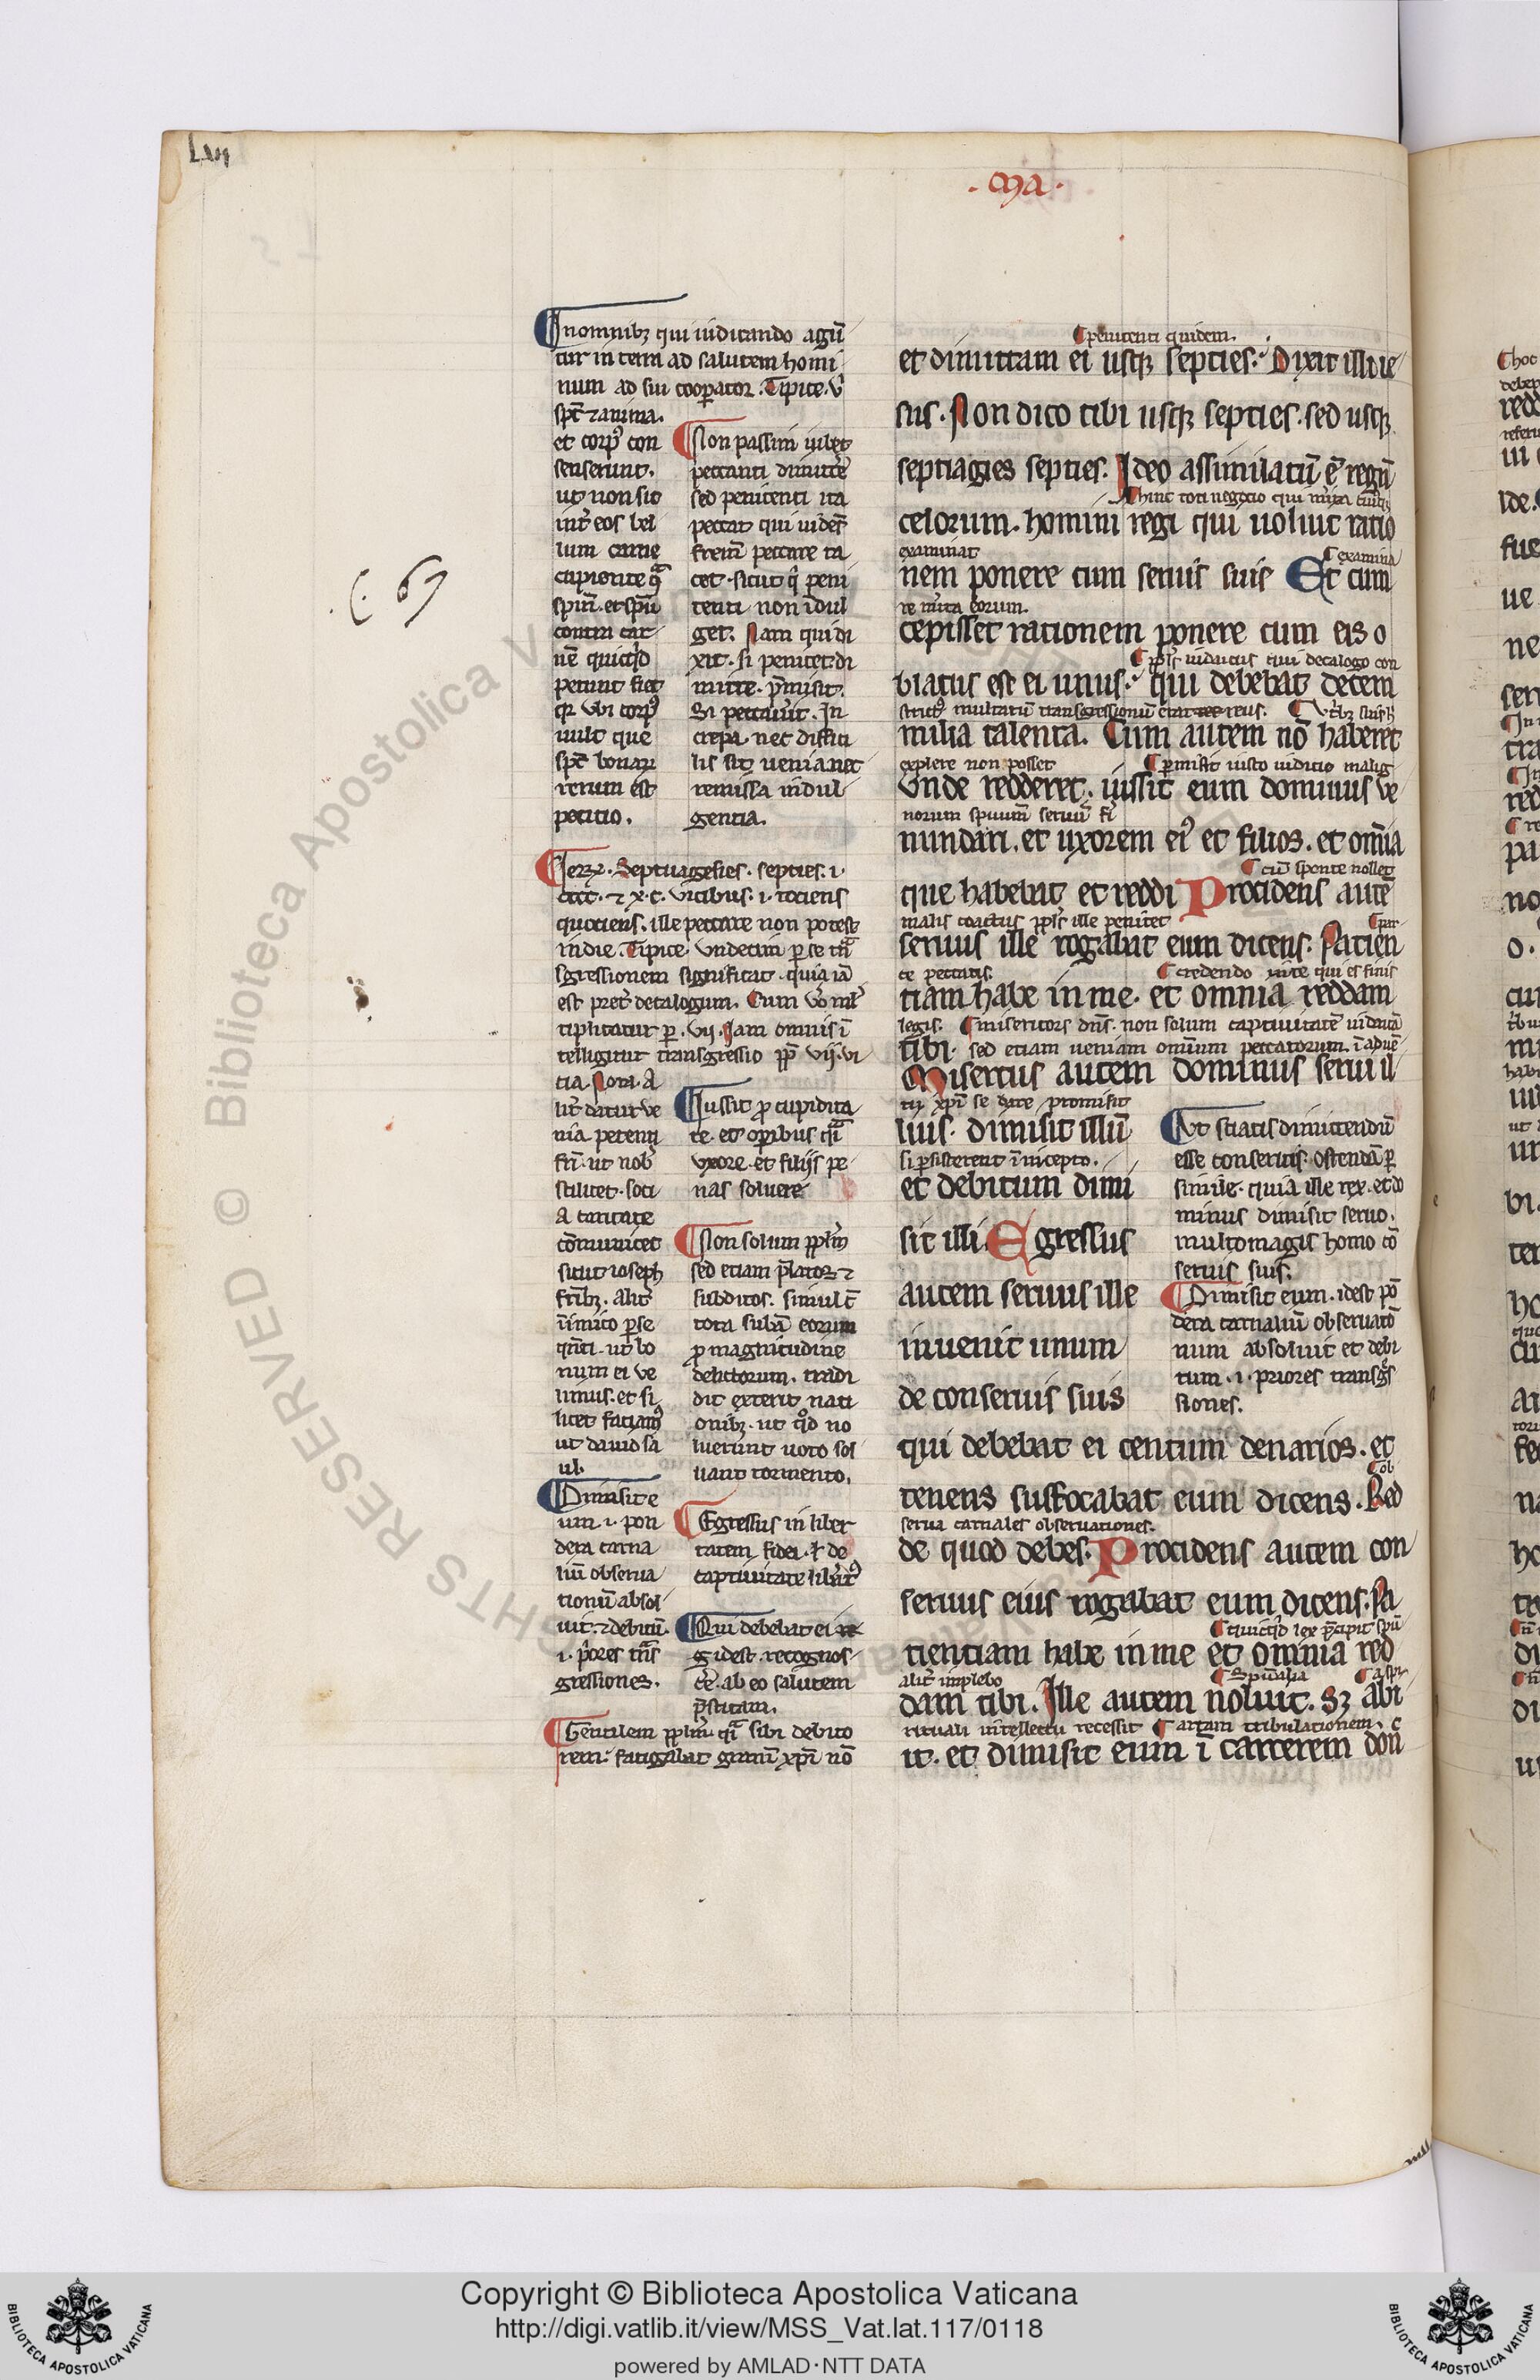 Lvii
.Ma.
¶ In omnib; qui iudicando agū
tur in terra ad salutem homi
num ad sui cooperator. Tipice. ū
spc̄ ⁊ anima.
et corpꝰ con
senserunt.
ut non sit
int̄ eos bel
lum carne
cupiente
spm̄. et spū
contra car
nē quicq̄d
petunt fiet
qr̄ ubi corpꝰ
uult que
spc̄ bonarū
rerum est
petitio.
¶ Non passim iubet
peccanti dimittere
sed penitenti ita
peccat qui uidet
frem̄ peccare ta
cet. sicut q̄ peni
tenti non īdul
get. Nam qui di
xit. si penitet. di
mitte. p̄misit.
Si peccauerit. In
crepa nec diffici
lis sit uenia. nec
remissa indul
gentia.
Septuagesies. septies. i.
cccc. ⁊ x.c. uicibus. i. tociens
quociens. ille peccare non potest
in die. Tipice. undecim per se tn̄s
sgressionem significat. quia iā
est pret̄ decalogum. Cum uō ml̄
tiplicatur per. vii. Iam omnis ī
telligitur transgressio pp̄ vii. ui
cia. Nota. A
lit̄ datur ue
nia petenti
frī. ut nob̄
scilicet. soci
a caritate
cōmunicet
sicut ioseph
frīb;. alit̄
inimico perse
q̄nti. ut bo
num ei ue
limus. et si
licet faciamꝰ
ut dauid sa
ul.
¶ Iussit pro cupidita
te. et operibus q̄si
uxore. et filijs pe
nas soluere
¶ Non solum pplm̄
sed etiam p̄latos ⁊
subditos. simul ⁊
tota subā eorum
pro magnitudine
delictorum. tradi
dit exterit nati
onib;. ut qd̄ no
luerunt uoto sol
uant tormento.
¶ Dimisit e
um. i. pon
dera carna
liū obserua
tionū absol
uit. ⁊ debitū.
i. p̄ores tn̄s
gressiones.
¶ Egressus in liber
tatem fidei. ⁊ de
captiuitate lib̄atꝰ
¶ Qui debebat ei
g idest. recognos
cē. ab eo salutem
p̄stitam.
¶ Gentilem pplm̄. q̄si sibi debito
rem. fatigabat gratiā xp̄i nō
¶ penitenti quidem.
et dimittam ei usq; septies. Dixit illi ie
sus. Non dico tibi usq; septies. sed usq;
septiagies septies. Ideo assimilatū ē regnū
celorum. homini regi qui uoluit ratio
examinat
¶ examina
nem ponere cum seruis suis Et cum
re uita eorum.
cepisset rationem ponere cum eis o
¶ ppls̄ iudaicus qui decalogo con
blatus est ei unus. qui debebat decem
strictꝰ multarū transgressionū erat reus.
milia talenta. Cum autem nō haberet
explere non posset ¶ permisit iusto iudicio malig
unde redderet. iussit eum dominus ue
norum spirituum seruū
nundari. et uxorem eiꝰ et filios. et omīa
¶ cū sponte nollet
que habebat et reddi Procidens autē
malis coactus ppls̄ ille penitet ¶ par
seruus ille rogabat eum dicens. Patien
ce peccatis. ¶ credendo in te qui es finis
tiam habe in me. et omnia reddam
legis. ¶ misericors dn̄s. non solum captiuitatē
tibi. sed etiam ueniam omnium peccatorum. ī aduē
Misertus autem dominus serui il
tu xp̄i se dare promisit
lius. dimisit illū
si persisterent ī incepto.
et debitum dimi
sit illi. Egressus
autem seruus ille
inuenit unum
de conseruis suis
¶ Ut sciatis dimittendū
esse conseruis. ostendā per
simile. quia ille rex. et do
minus dimisit seruo.
multo magis homo cō
seruis suis.
¶ Dimisit eum. idest pō
dera carnaliū obseruatō
num absoluit et debi
tum. i. priores transgs̄
siones.
qui debebat ei centum denarios. et
¶ ob
tenens suffocabat eum dicens. Red
serua carnales obseruationes.
de quod debes. Procidens autem con
seruus eius rogabat eum dicens. Pa
¶ quicq̄d lex p̄cipit spū
tientiam habe in me et omnia red
alit̄ implebo ¶ Spūalia ¶ a spi
dam tibi. Ille autem noluit. S; abi
rituali intellectu recessit ¶ artam tribulationem. c
it. et dimisit eum ī carcerem don
Copyright © Biblioteca Apostolica Vaticana
http://digi.vatlib.it/view/MSS_Vat.lat.117/0118
powered by AMLAD·NTT DATA
BIBLIOTECA APOSTOLICA VATICANA
BIBLIOTECA APOSTOLICA VATICANA